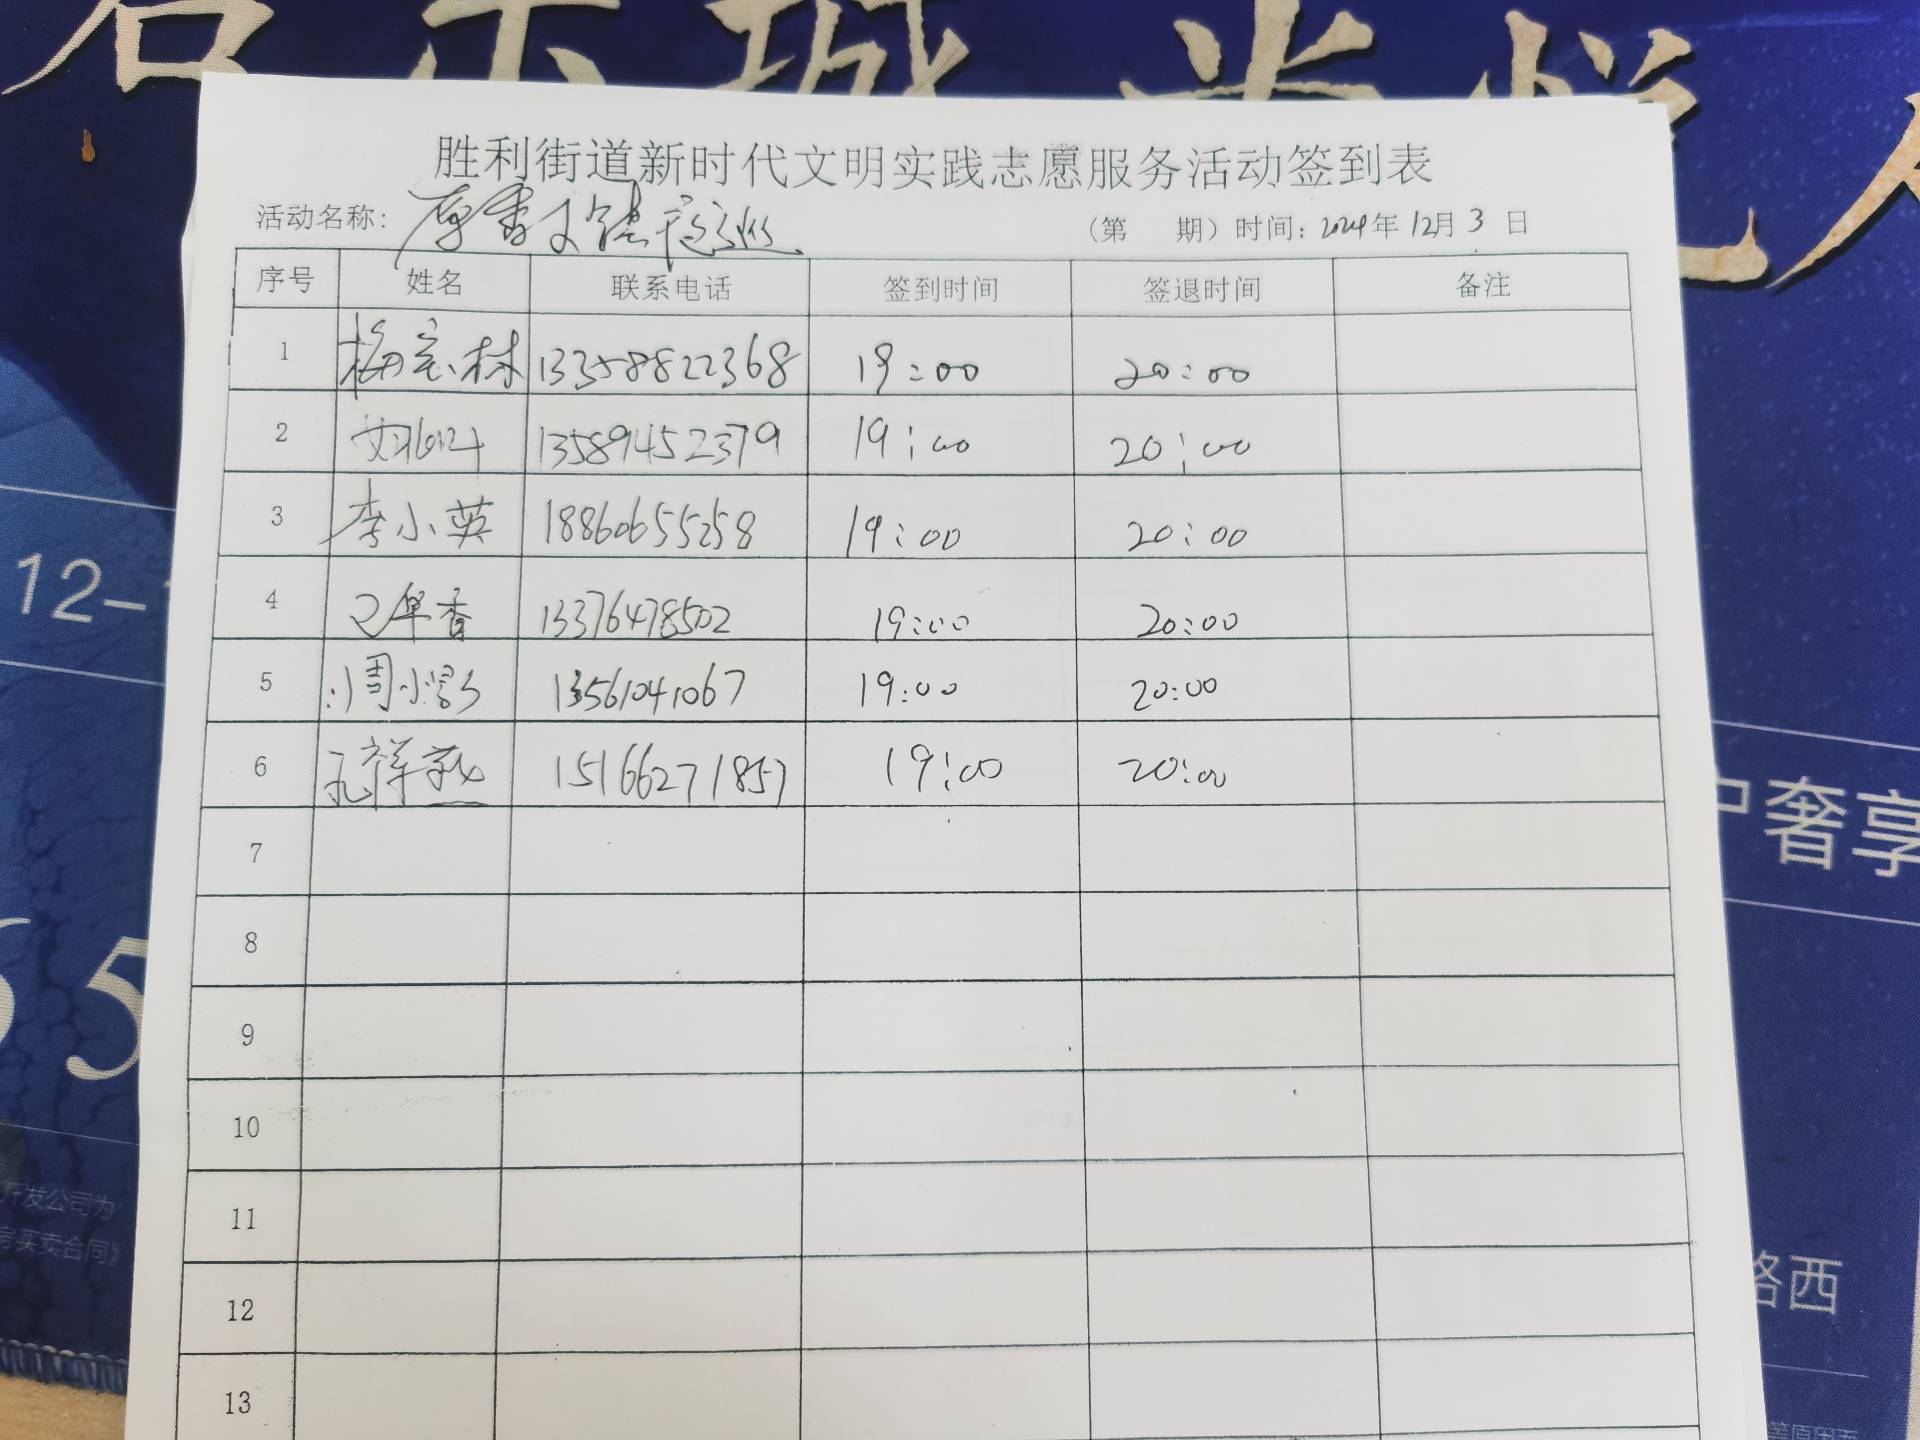 胜利街道新时代文明实践志愿服务活动签到表
活动名称:
(第 期)时间: 2024年 12月 3 日
序号 姓名 联系电话 签到时间 签退时间 备注
1 13358822368 19:00 20:00
2 13589452379 19:00 20:00
3 李小英 18860655258 19:00 20:00
4 13376478502 19:00 20:00
5 周小影 13561041067 19:00 20:00
6 孔祥 15166271857 19:00 20:00
7
8
9
10
11
12
13
12-
5
中奢享
路西
开发公司为
房买卖合同》